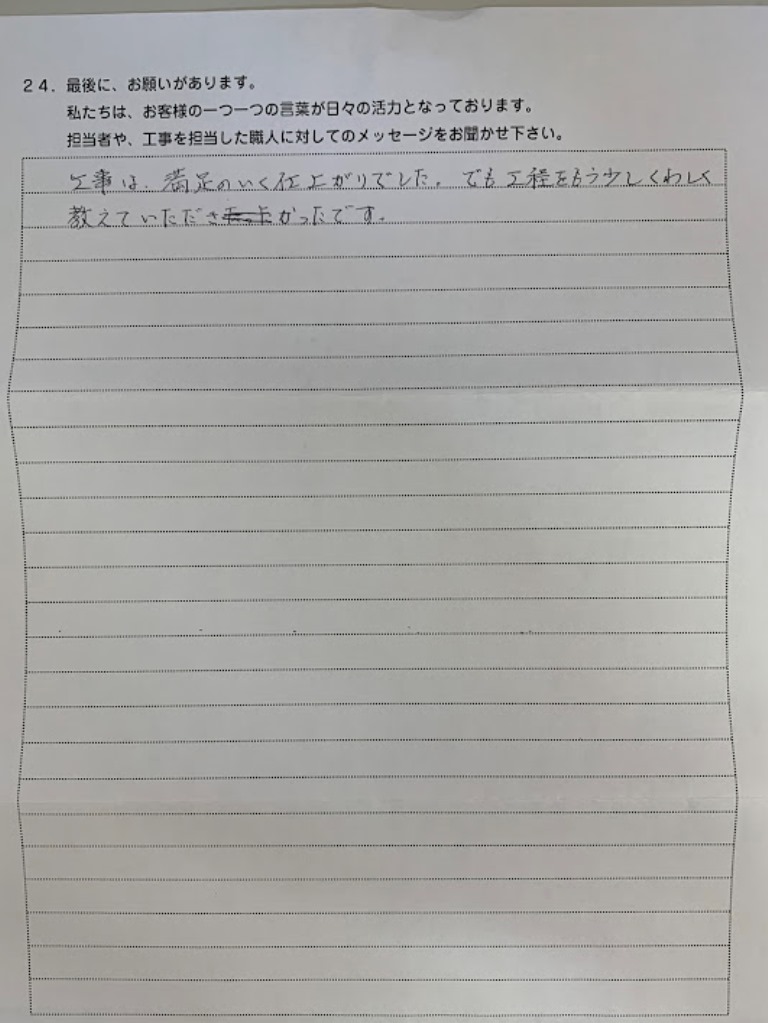 24. 最後に、お願いがあります。
私たちは、お客様の一つ一つの言葉が日々の活力となっております。
担当者や、工事を担当した職人に対してのメッセージをお聞かせ下さい。
工事は、満足のいく仕上がりでした。でも工程をもう少しくわしく
教えていただきたかったです。